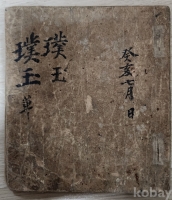 癸亥七月 日
璞玉
璞玉草
kobay